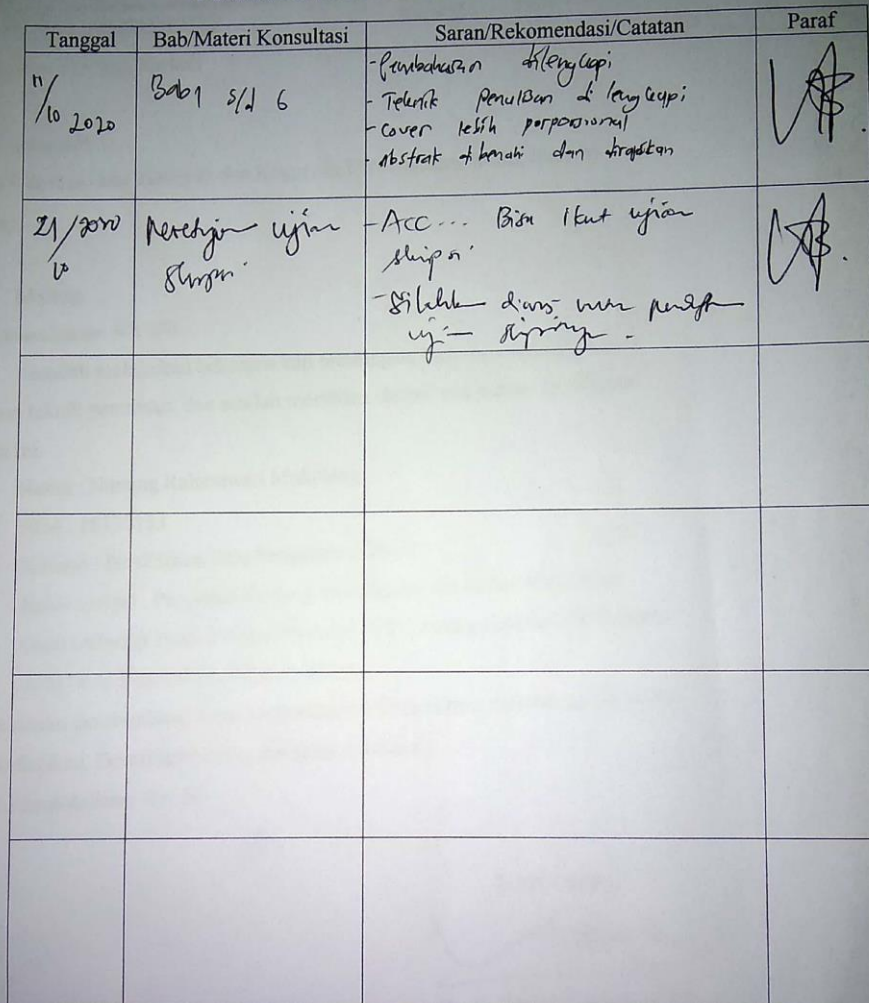 Tanggal Bab/Materi Konsultasi Saran/Rekomendasi/Catatan Paraf
11/10 2020
Bab 1 s/d 6
- Pembahasan dilengkapi
- Teknik penulisan dilengkapi
- Cover lebih porporsional
- Abstrak dibenahi dan diringkas
21/2020
10
Persetujuan ujian
skripsi
- Acc... Bisa ikut ujian
skripsi
- Silahkan diurus
ujian skripsinya.